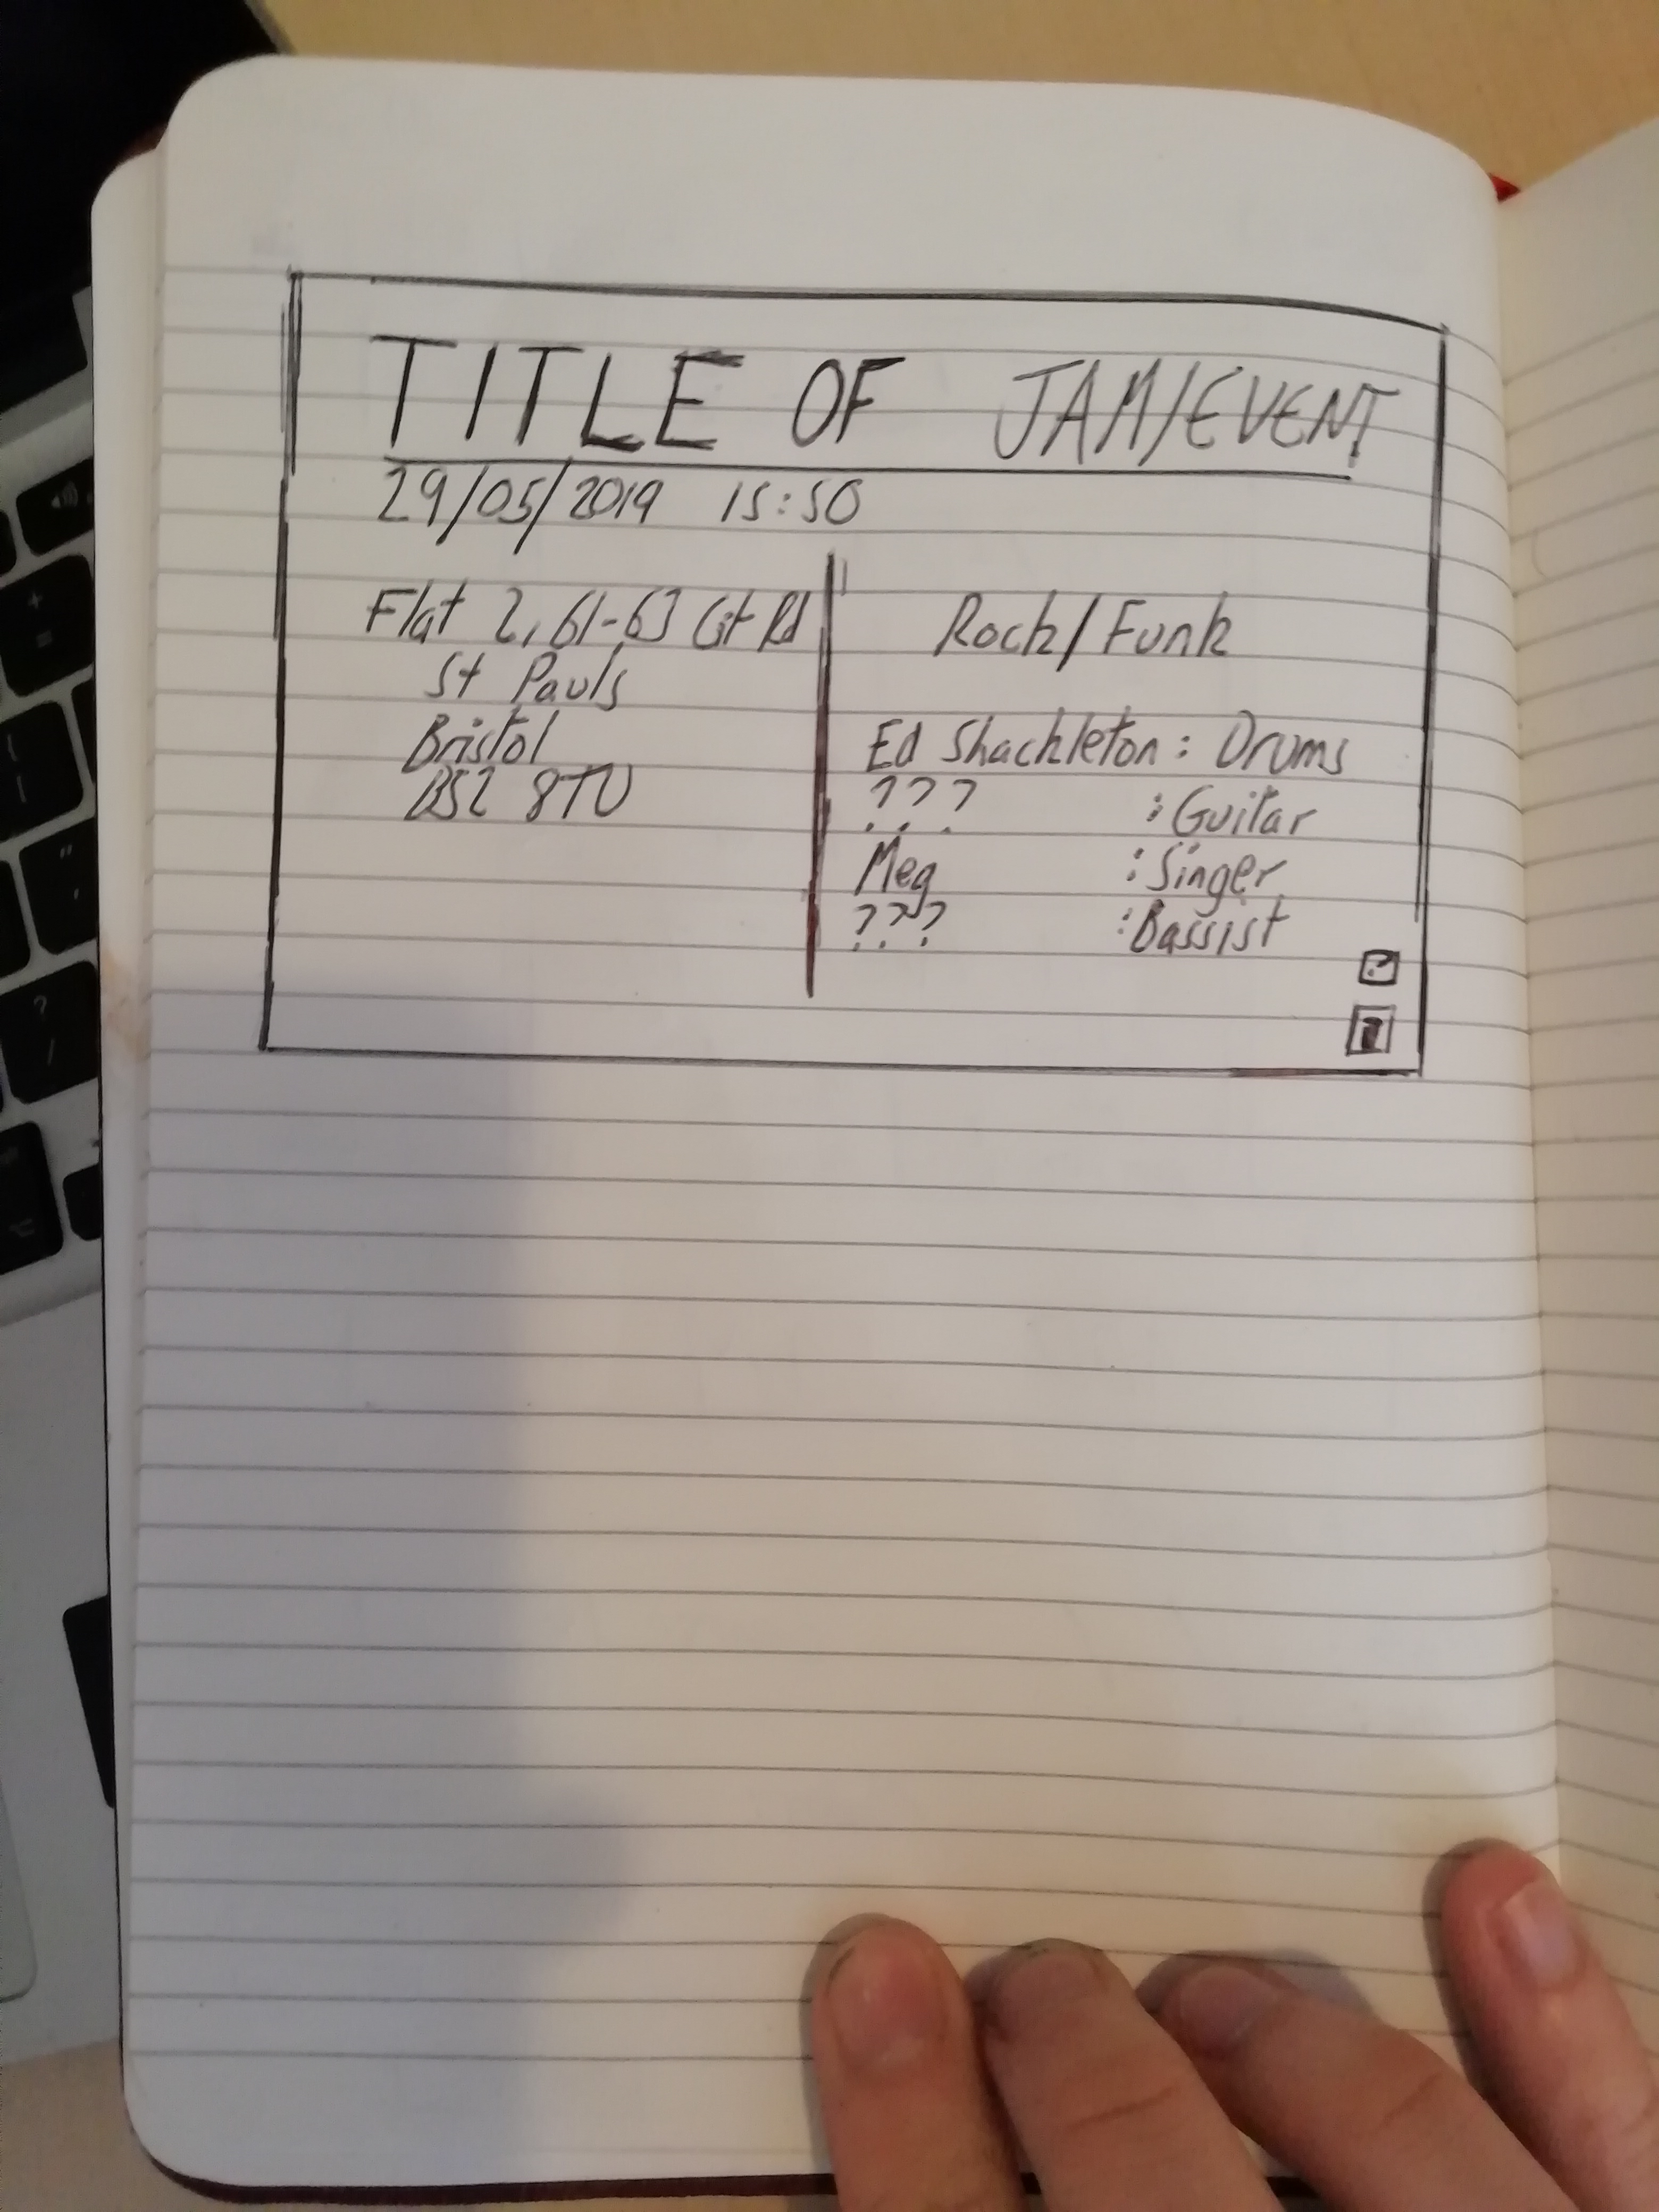 TITLE OF JAM/EVENT
29/05/2019 15:50
Flat 2, 61-63 Gt Rd
St Pauls
Bristol
BS2 8TU
Rock/Funk
Ed Shackleton : Drums
??? : Guitar
Meg : Singer
??? : Bassist